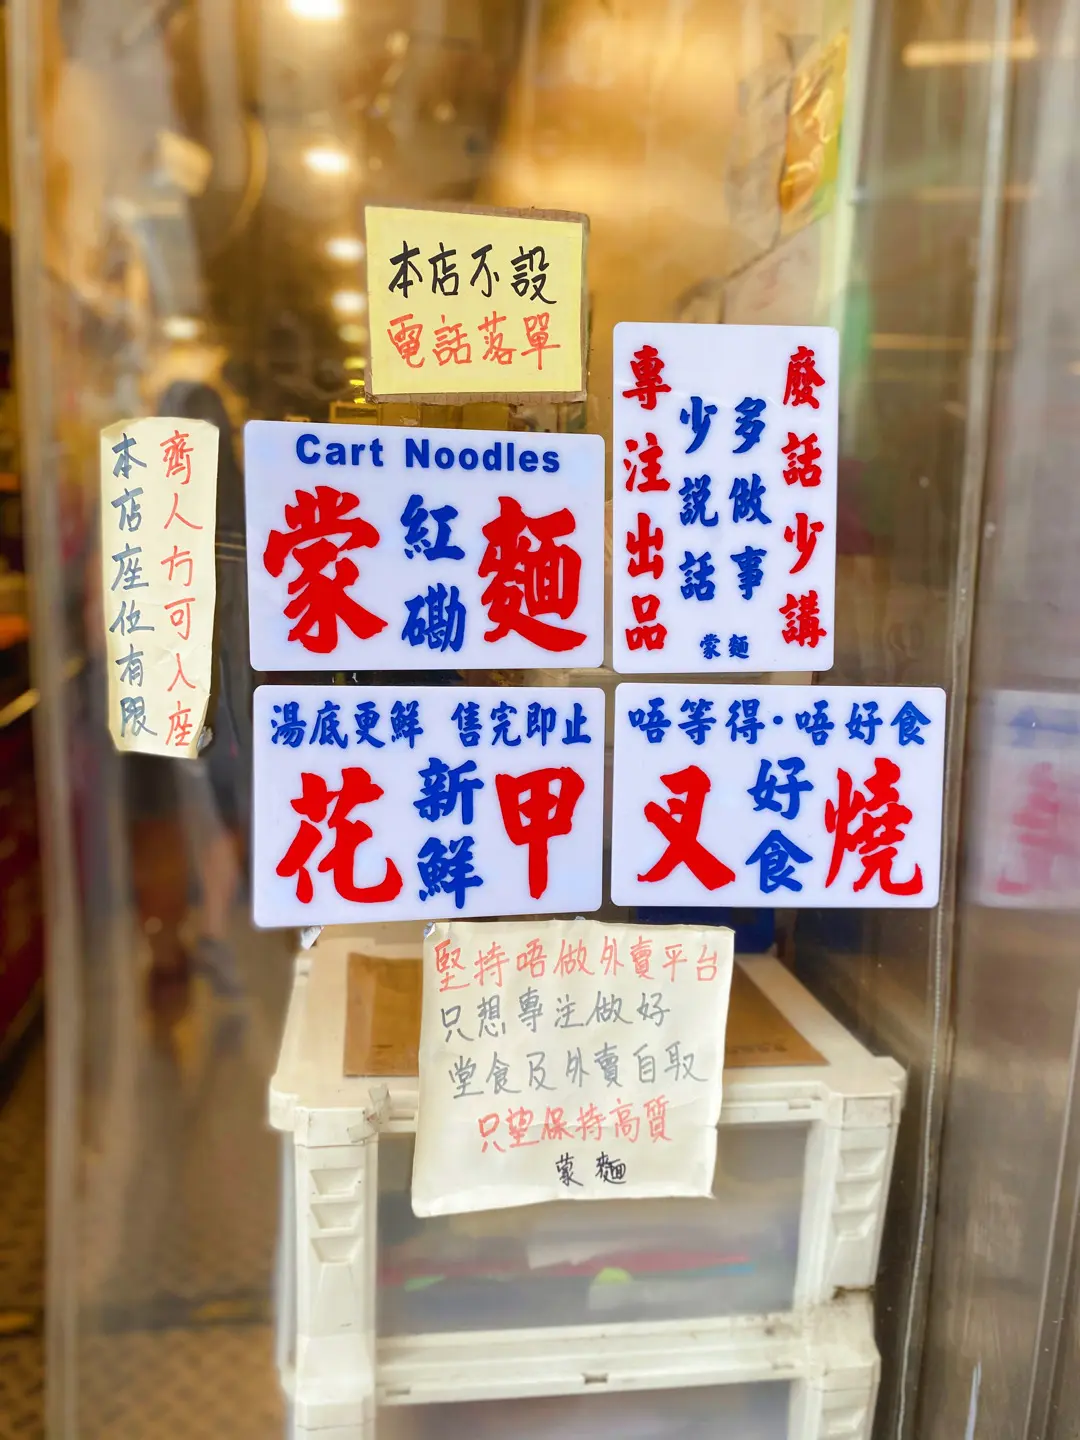 本店不設
電話落單
齊人方可入座
本店座位有限
Cart Noodles
蒙 紅磡 麵
廢話少講
多做事
少説話
專注出品
蒙麵
湯底更鮮 售完即止
花 新鮮 甲
唔等得·唔好食
叉 好食 燒
堅持唔做外賣平台
只想專注做好
堂食及外賣自取
只望保持高質
蒙麵